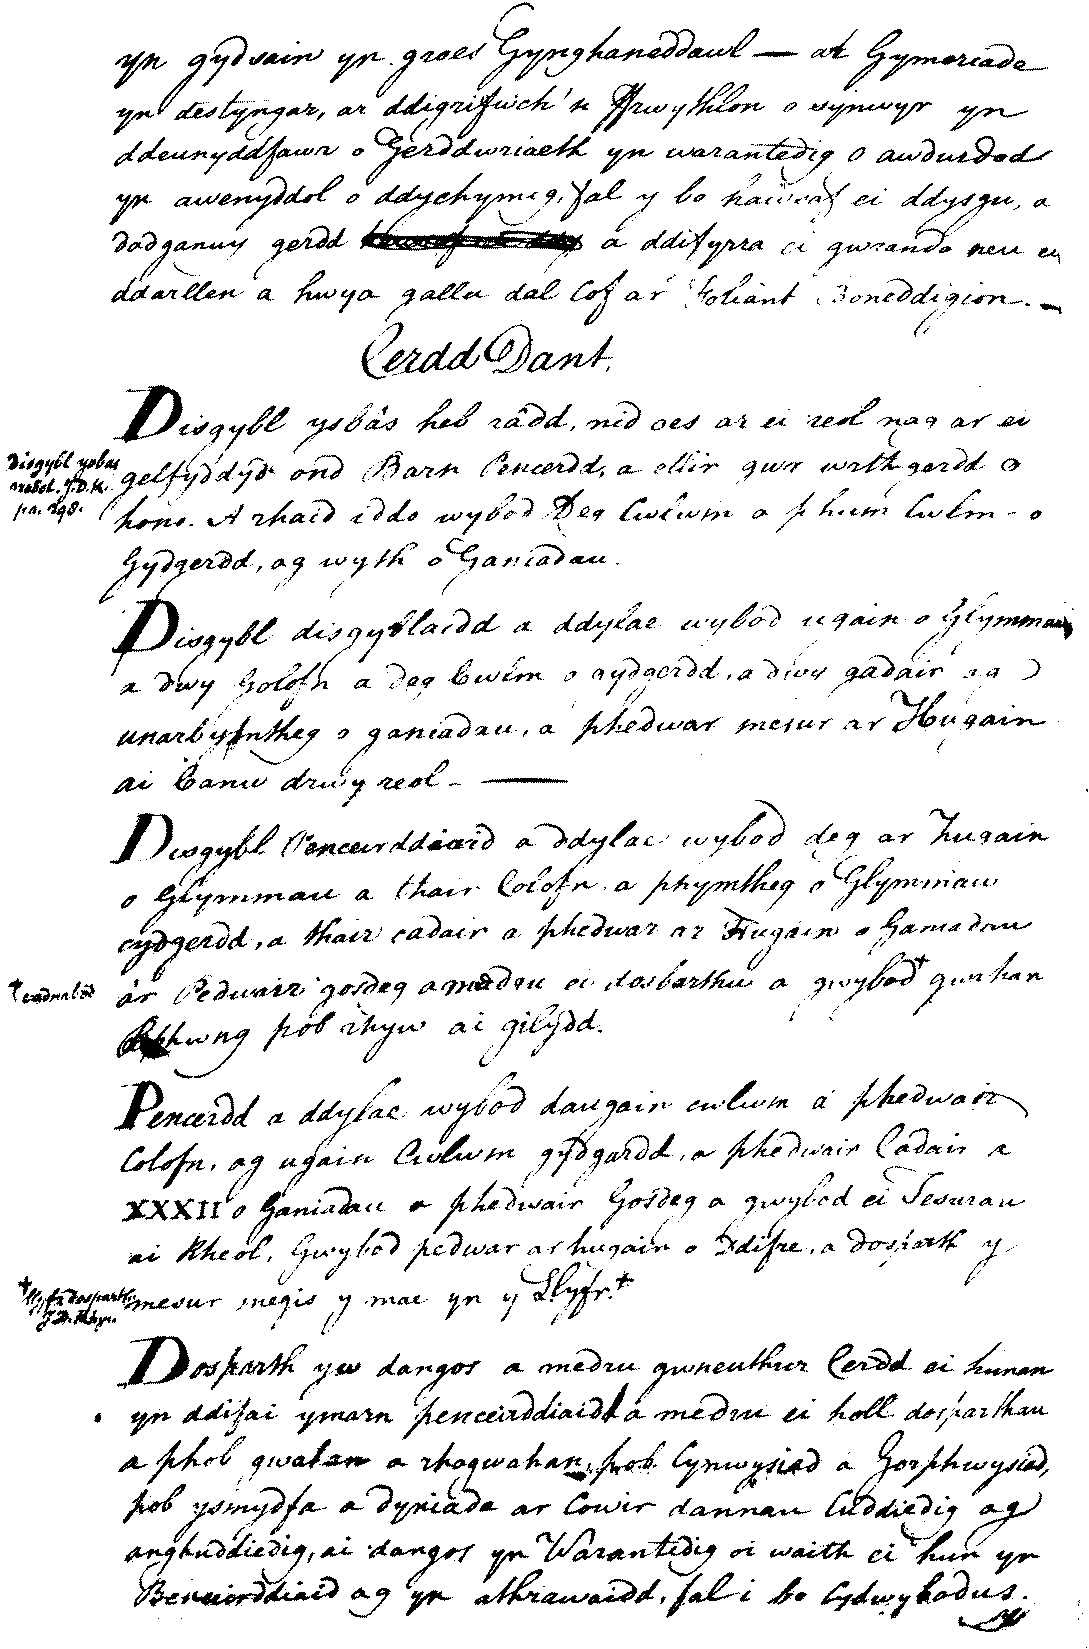 yn gydsain yn groes Gynghaneddawl — ar Gymeriade
yn destyngar, ar ddigrifwch'n ffrwythlon o synwyr yn
ddeunyddfawr o Gerddwriaeth yn warantedig o awdurdod
yn awenyddol o ddychymig, fal y bo hawsaf ei ddysgu, a
dadganuy gerdd a ddifyrra ei gwrando neu ei
ddarllen a hwya gallu dal Cof a'r Foliant Boneddigion. —
Cerdd Dant.
Disgybl ysbâs heb râdd, nid oes ar ei reol nag ar ei
gelfyddyd ond Barn Pencerdd, a ellir gwr wrth gerdd o
hono. A rhaid iddo wybod Deg Cwlwm a phum Cwlm o
Gydgerdd, ag wyth o Ganiadau.
Disgybl ysbas
J.D.R.
pa. 298.
Disgybl disgyblaidd a ddylae wybod ugain o Glymmau
a dwy Golofn a deg Cwlm o gydgerdd, a dwy gadair ag
unarbymtheg o ganiadau, a phedwar mesur ar Hugain
ai Canu drwy reol — 
Disgybl Penceirddiaid a ddylae wybod deg ar hugain
o Glymmau a thair Colofn a phymtheg o Glymmau
cydgerdd, a thair cadair a phedwar ar Hugain o Ganiadau
a'r Pedwair gosdeg a medru ei dosbarthu a gwybod† gwahan
rhwng pob rhyw ai gilydd.
† adnabod
Pencerdd a ddylae wybod daugain cwlwm a phedwair
Colofn, ag ugain Cwlwm gydgerdd, a phedwair Cadair a
XXXII o Ganiadau a phedwair Gosdeg a gwybod ei Fesurau
ai Rheol, Gwybod pedwar ar hugain o Ddifre, a dosparth y
mesur megis y mae yn y Llyfr.†
† Llyfr dosparth
J.D. Rhys.
Dosparth yw dangos a medru gwneuthur Cerdd ei hunan
yn ddifai ymarn penceirddiaid a medru ei holl dosparthau
a phob gwahan a rhagwahan, pob Cynwysiad a Gorphwysiad,
pob ysmydfa a dyniada ar Cowir dannau Cuddiedig ag
anghuddiedig, ai dangos yn Warantedig oi waith ei hun yn
Benceirddiaid ag yn athrawaidd, fal i bo Cydwybodus.